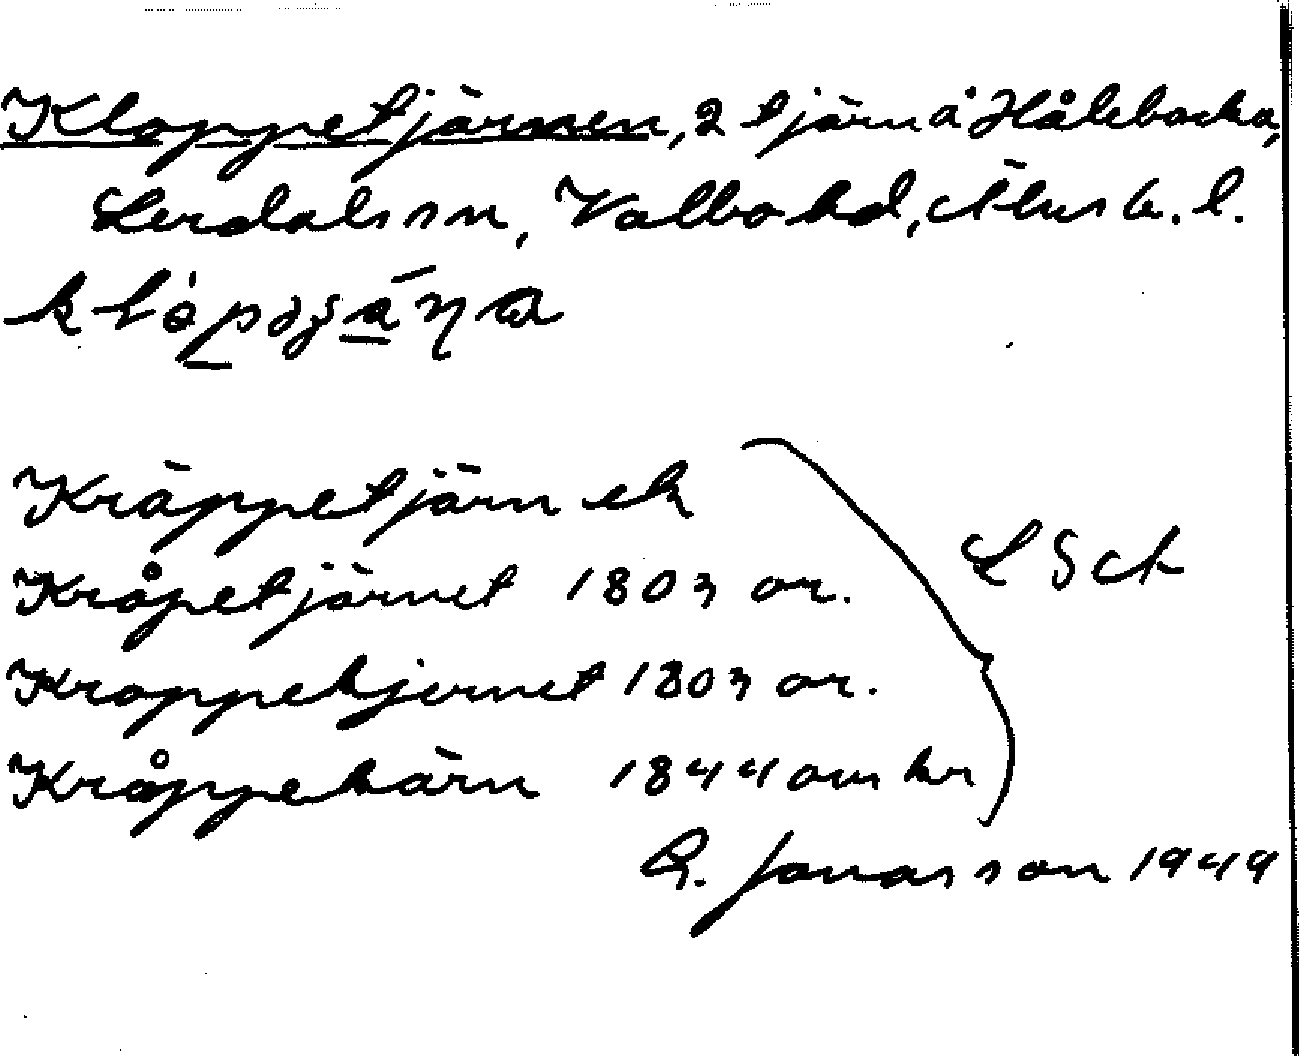 Kloppetjärnen, 2 tjärn å Hålebacka,
Lerdals sn, Valbo hd, Älvsb. l.
Kräppetjärn ek
Kråpetjärnet 1803 or.
Kroppekjernet 1803 or.
Kråppekärn 1844 om kr
LSck
G. Jonasson 1949